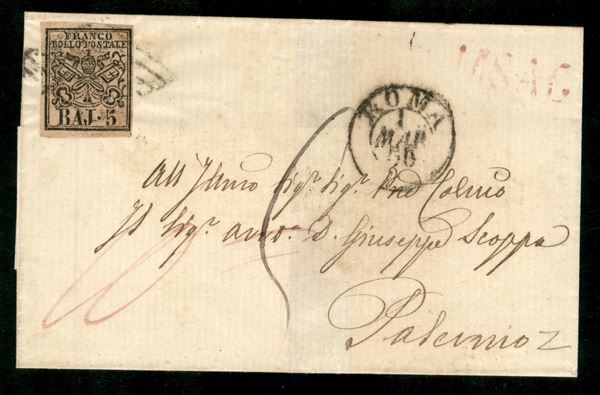 FRANCO
BOLLO POSTALE
BAJ. 5
ROMA
1
MAR
56
All' Illmo Sigr. Sigr. Pne Colmo
Il Sigr. avvo. D. Giuseppe Scoppa
Palermo